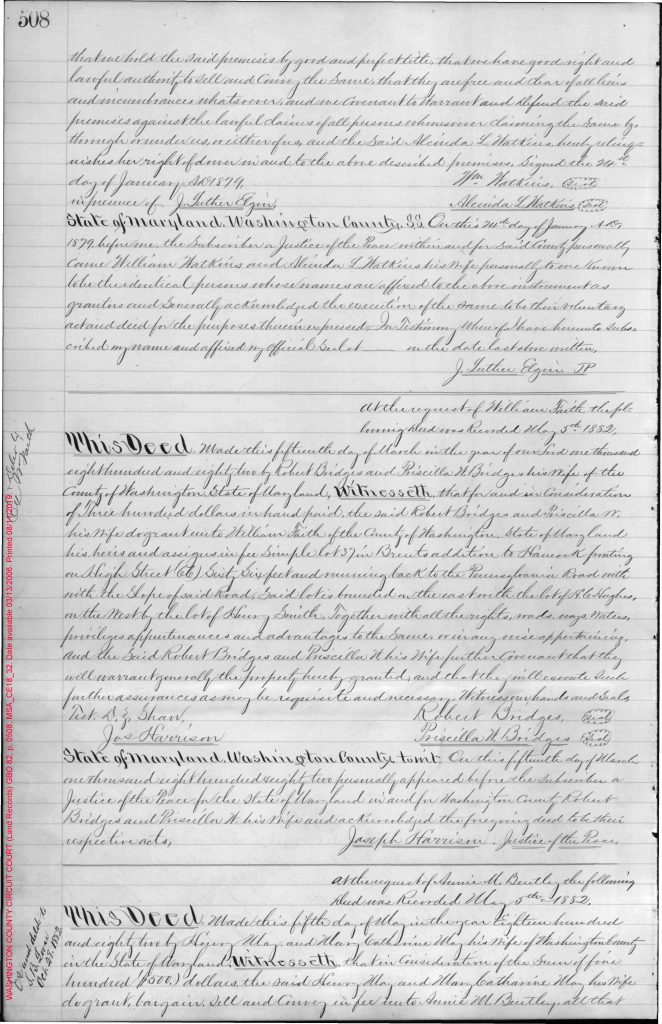 508
that we hold the said premises by good and perfect title, that we have good right and
lawful authority to sell and convey the same, that they are free and clear of all liens
and incumbrances whatsoever; and we covenant to warrant and defend the said
premises against the lawful claims of all persons whomsoever claiming the same by,
through or under us, or either of us, and the said Alcinda L Watkins, hereby relinq-
uishes her right of dower in and to the above described premises. Signed the 24th
day of January, AD 1879,
Wm. Watkins, (Seal)
in presence of J. Luther Elgin,
Alcinda L Watkins, (Seal)
State of Maryland. Washington County, SS. On this 24th day of January A.D.
1879 before me, the Subscriber a Justice of the Peace within and for said County personally
came William Watkins and Alcinda L Watkins his wife personally to me known
to be the identical persons whose names are affixed to the above instrument as
grantors and Severally acknowledged the execution of the same to be their voluntary
act and deed for the purposes therein expressed. In Testimony Whereof I have hereunto subs-
cribed my name and affixed my official Seal at — on the date last above written,
J. Luther Elgin JP
At the request of William Faith the fol-
lowing deed was Recorded May 5th 1882.
This Deed, Made this fifteenth day of March in the year of our Lord one thousand
eight hundred and eighty two by Robert Bridges and Priscilla W. Bridges his wife of the
County of Washington, State of Maryland, Witnesseth, that for and in Consideration
of Three hundred dollars in hand paid, the said Robert Bridges and Priscilla W.
his Wife do grant unto William Faith of the County of Washington, State of Maryland
his heirs and assigns in fee Simple lot 37 in Brents addition to Hancock fronting
on High Street Sixty Six feet and running back to the Pennsylvania Road with
with the Slope of said Road, Said lot is bounded on the east with the lot of Hughes,
on the West by the lot of Henry Smith, Together with all the rights, roads, ways, Waters,
privileges appurtenances and advantages to the Same, or in any wise appertaining,
and the Said Robert Bridges and Priscilla W. his Wife further Covenant that they
will warrant generally the property hereby granted, and that they will execute such
further assurances as may be requisite and necessary. Witness our hands and Seals
Test. D. Z. Shaw,
Robert Bridges, (Seal)
Jos Harrison
Priscilla W. Bridges (Seal)
State of Maryland, Washington County to wit. On this fifteenth day of March
one thousand eight hundred eighty two personally appeared before the subscriber a
Justice of the Peace for the State of Maryland in and for Washington County Robert
Bridges and Priscilla W. his Wife and acknowledged the foregoing deed to be their
respective acts,
Joseph Harrison. Justice of the Peace.
At the request of Annie M. Bentley the following
Deed was Recorded May 5th 1882.
This Deed, Made this fifth day of May in the year Eighteen hundred
and eighty two by Henry May and Mary Catharine May his Wife of Washington County
in the State of Maryland, Witnesseth, that in Consideration of the Sum of five
hundred ($500.) dollars, the said Henry May and Mary Catharine May his Wife
do grant, bargain, Sell and Convey in fee unto Annie M. Bentley, all that
WASHINGTON COUNTY CIRCUIT COURT (Land Records) GBO 82, p. 0508, MSA_CE18_32. Date available 03/13/2006. Printed 08/11/2019.